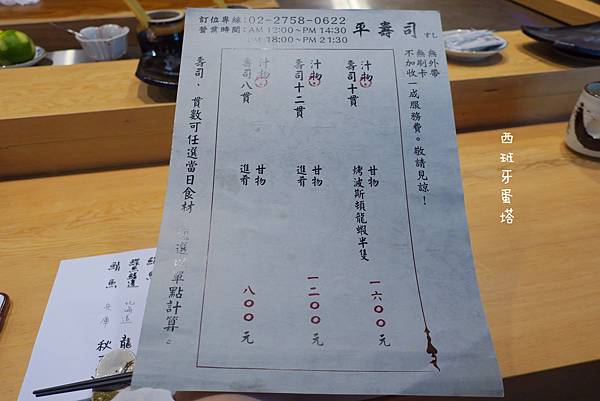 訂位專線：02-2758-0622
營業時間：AM 12:00~PM 14:30
PM 18:00~PM 21:30
平壽司 すし
無外帶
無刷卡
不加收一成服務費。敬請見諒！
汁物
壽司十貫
甘物
烤波斯頓龍蝦半隻
一六〇〇元
汁物
壽司十二貫
甘物
進肴
一二〇〇元
汁物
壽司八貫
甘物
進肴
八〇〇元
壽司、貫數可任選當日食材
選以單點計算。
西班牙蛋塔
北海道
龍
鯖魚
兵庫
秋